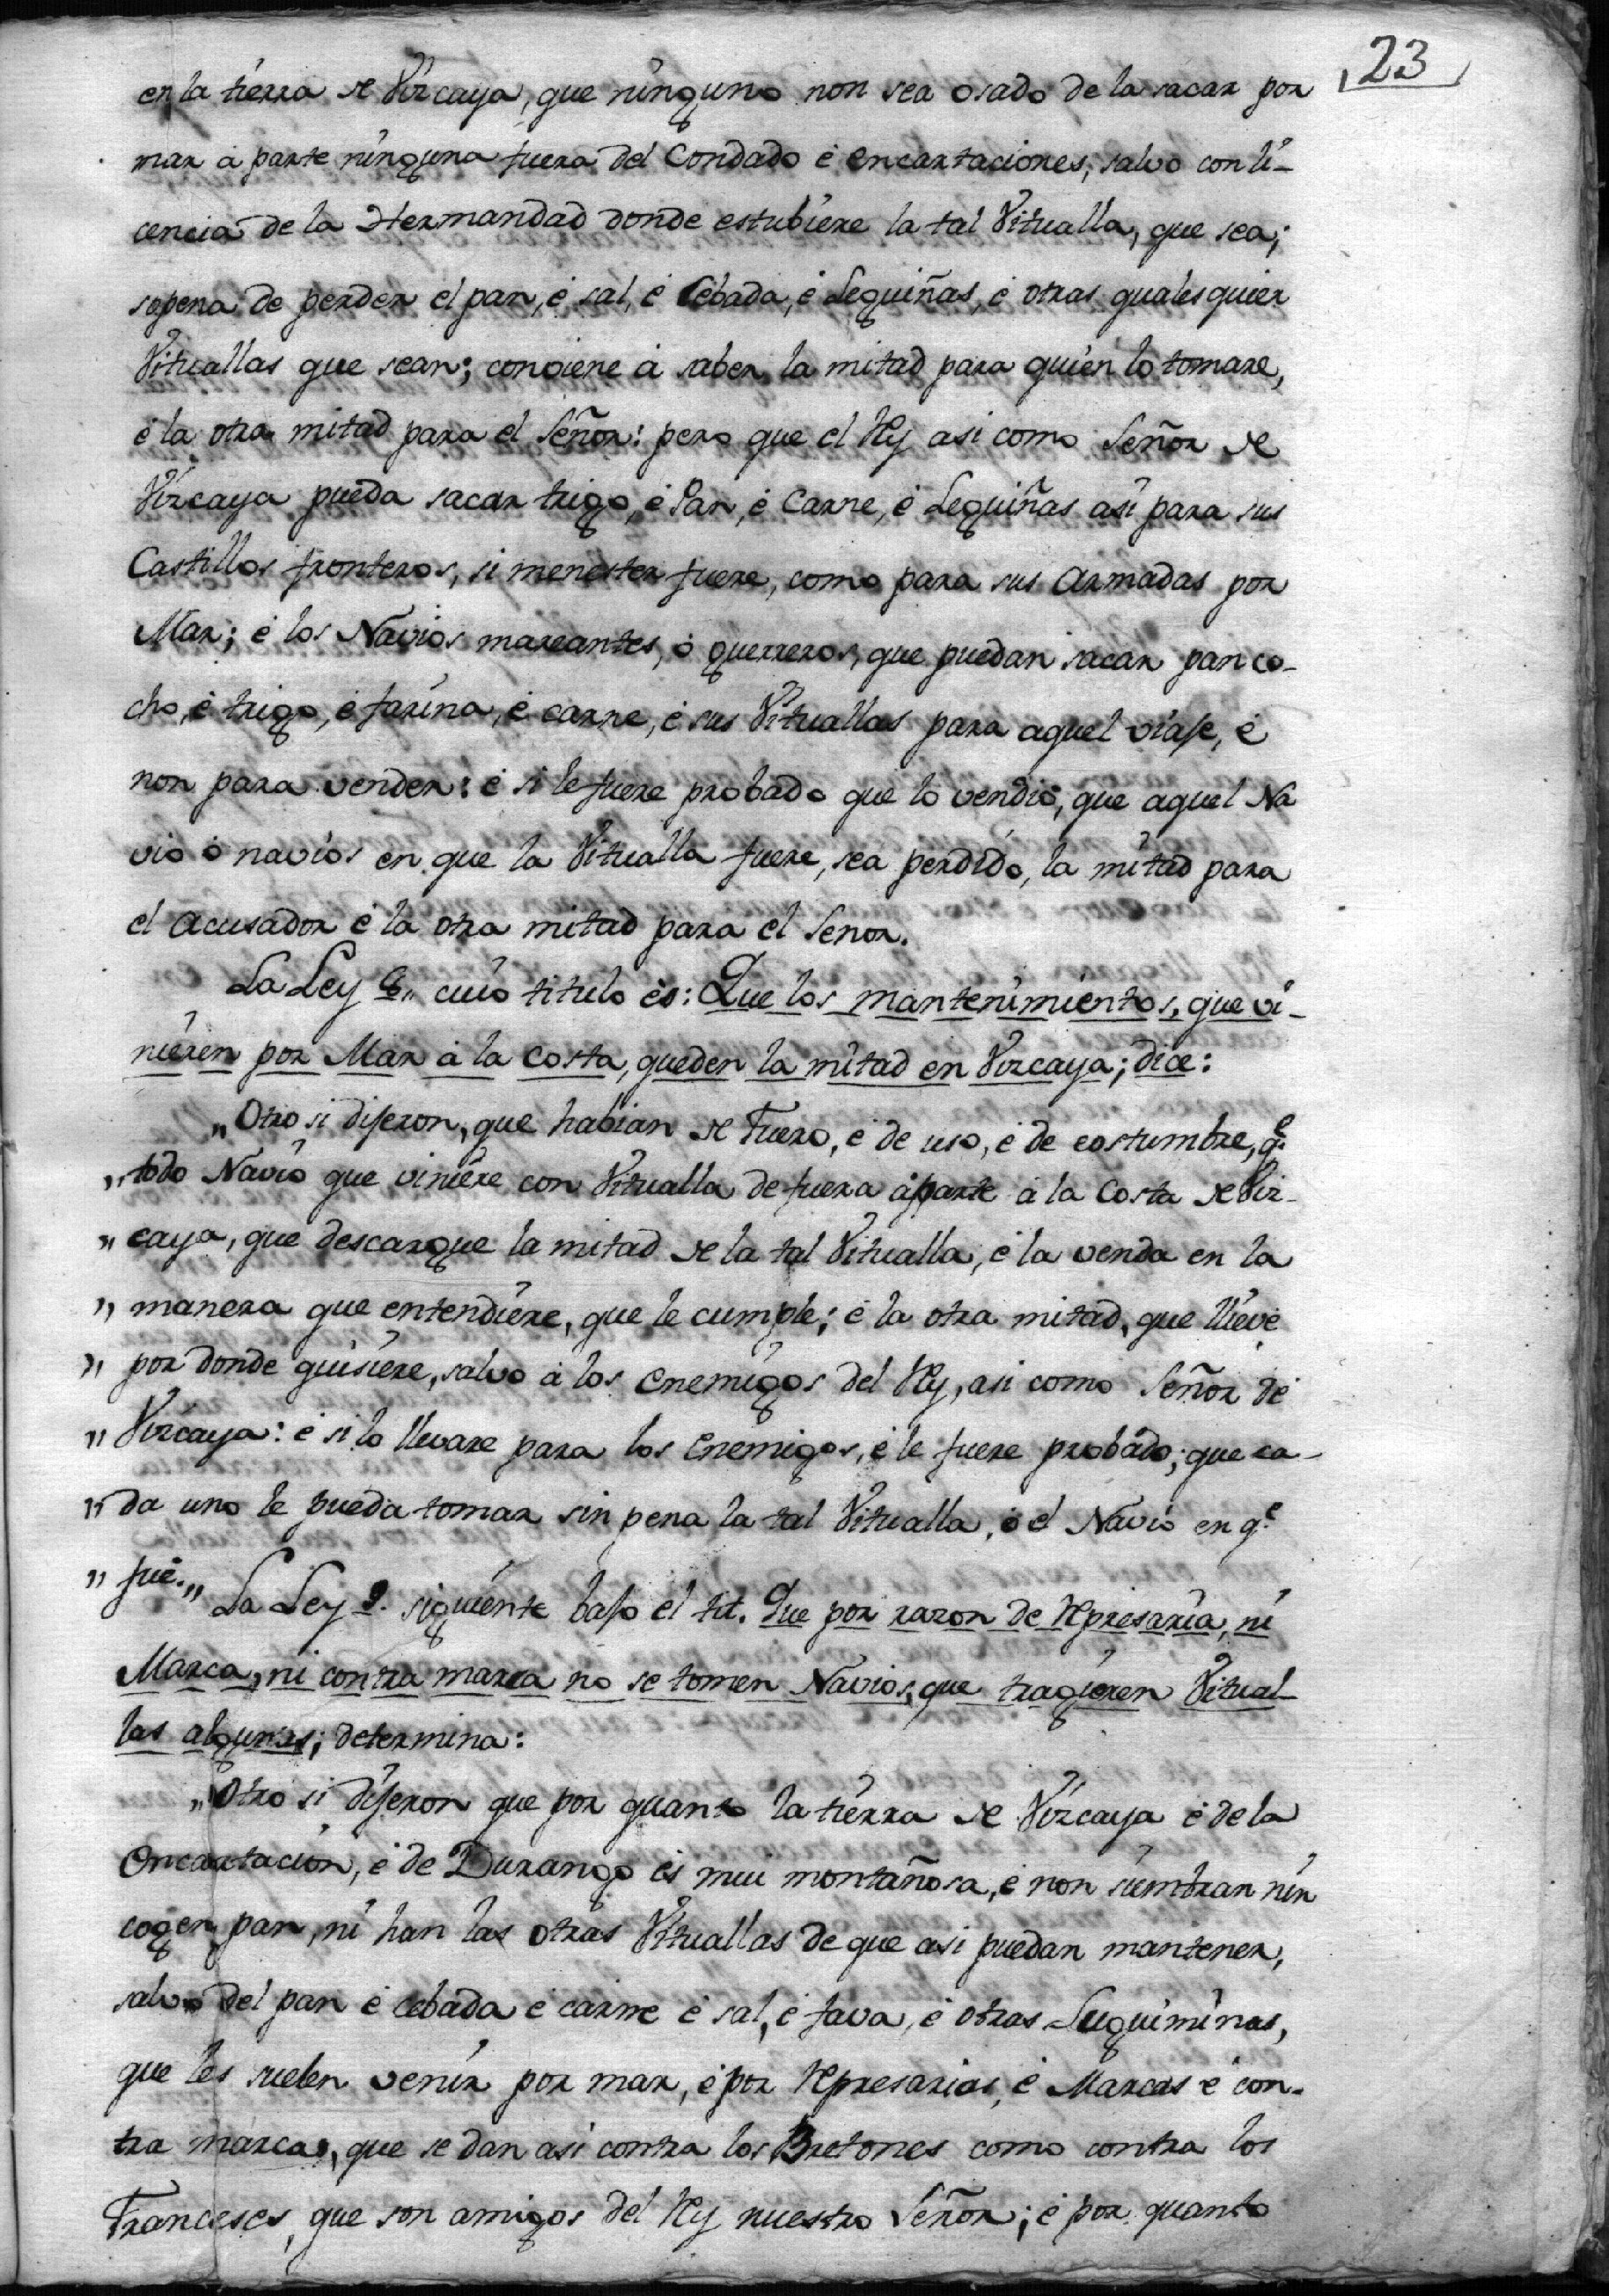 23
en la tierra de Vizcaya, que ninguno non sea osado de la sacar por
mar á parte ninguna fuera del Condado é encartaciones, salvo con li-
cencia de la Hermandad donde estubiere la tal Vitualla, que sea;
sopena de perder el pan, é sal, é Cebada, é Leguiñas, é otras qualesquier
Vituallas que sean; conviene á saber, la mitad para quien lo tomare,
é la otra mitad para el Señor: pero que el Rey asi como Señor de
Vizcaya pueda sacar trigo, é Pan, é Carne, é Leguiñas asi para sus
Castillos fronteros, si menester fuere, como para sus Armadas por
Mar; é los Navios mareantes, ó guerreros, que puedan sacar pan co-
cho, é trigo, é farina, é carne, é sus Vituallas para aquel viaje, é
non para vender: é si le fuere probado que lo vendió, que aquel Na
vio ó navios en que la Vitualla fuere, sea perdido, la mitad para
el Acusador é la otra mitad para el Señor.
La Ley 6,, cuio titulo es: Que los mantenimientos, que vi-
nieren por Mar á la Costa, queden la mitad en Vizcaya; dice:
„Otro si dijeron, que habian de Fuero, é de uso, é de costumbre, q.e
„todo Navio que viniere con Vitualla de fuera aparte á la Costa de Viz-
„caya, que descargue la mitad de la tal Vitualla, é la venda en la
„manera que entendiere, que le cumple; é la otra mitad, que lieve
„por donde quisiere, salvo á los enemigos del Rey, asi como Señor de
„Vizcaya: é si lo llevare para los enemigos, é le fuere probado; que ca-
„da uno le pueda tomar sin pena la tal Vitualla, é el Navio en q.e
„fué.„ La Ley 9. siguiente bajo el tit. Que por razon de Represaria, ni
Marca, ni contra marca no se tomen Navios, que tragieren Vitual-
las algunas; determina:
„Otro si dijeron que por quanto la tierra de Vizcaya é de la
Encartacion, é de Durango es mui montañosa, é non siembran nin
cogen pan, ni han las otras Vituallas de que asi puedan mantener,
salvo del pan é cebada é carne é sal, é fava, é otras Luguiminas,
que les suelen venir por mar, é por Represarias, é Marcas é con-
tra marcas, que se dan asi contra los Bretones como contra los
Franceses, que son amigos del Rey nuestro Señor; é por quanto